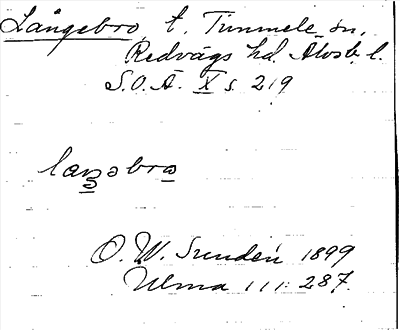 Långebro, t. Timmele sn,
Redvägs hd. Älvsb. l.
S.O.Ä. X s. 219
laŋəbro
O. W. Sundén 1899
Ulma 111:287.